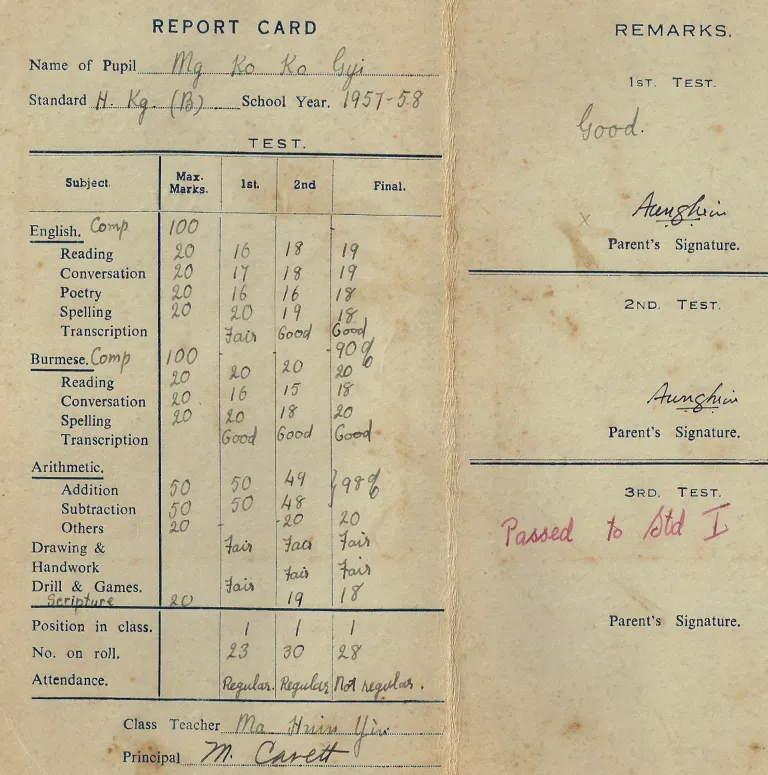 REPORT CARD
Name of Pupil Mg Ko Ko Gyi
Standard H. Kg. (B) School Year. 1957-58
TEST.
Subject. Max. Marks. 1st. 2nd Final.
English. Comp 100
Reading 20 16 18 19
Conversation 20 17 18 19
Poetry 20 16 16 18
Spelling 20 20 19 18
Transcription Fair Good Good
Burmese. Comp 100 90%
Reading 20 20 20 20
Conversation 20 16 15 18
Spelling 20 20 18 20
Transcription Good Good Good
Arithmetic.
Addition 50 50 49 } 98%
Subtraction 50 50 48
Others 20 - 20 20
Drawing & Fair Fair Fair
Handwork Fair Fair
Drill & Games. Fair
Scripture 20 19 18
Position in class. 1 1 1
No. on roll. 23 30 28
Attendance. Regular. Regular Not regular.
Class Teacher Ma Hnin Yin
Principal M. Cavett
REMARKS.
1ST. TEST.
Good.
x
Parent's Signature.
2ND. TEST.
Parent's Signature.
3RD. TEST.
Passed to Std I
Parent's Signature.